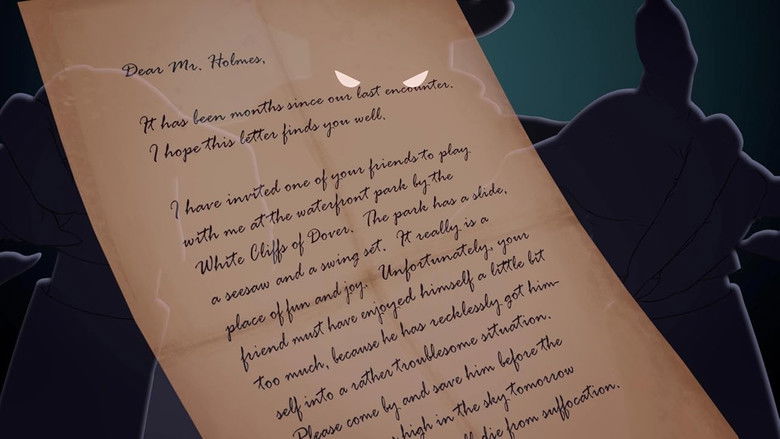 Dear Mr. Holmes,
It has been months since our last encounter.
I hope this letter finds you well.
I have invited one of your friends to play
with me at the waterfront park by the
White Cliffs of Dover. The park has a slide,
a seesaw and a swing set. It really is a
place of fun and joy. Unfortunately, your
friend must have enjoyed himself a little bit
too much, because he has recklessly got him-
self into a rather troublesome situation.
Please come by and save him before the
high in the sky tomorrow
die from suffocation.